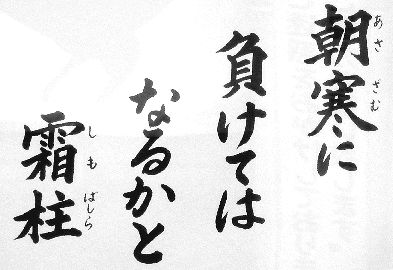 朝寒に
あさざむ
負けては
なるかと
霜柱
しもばしら